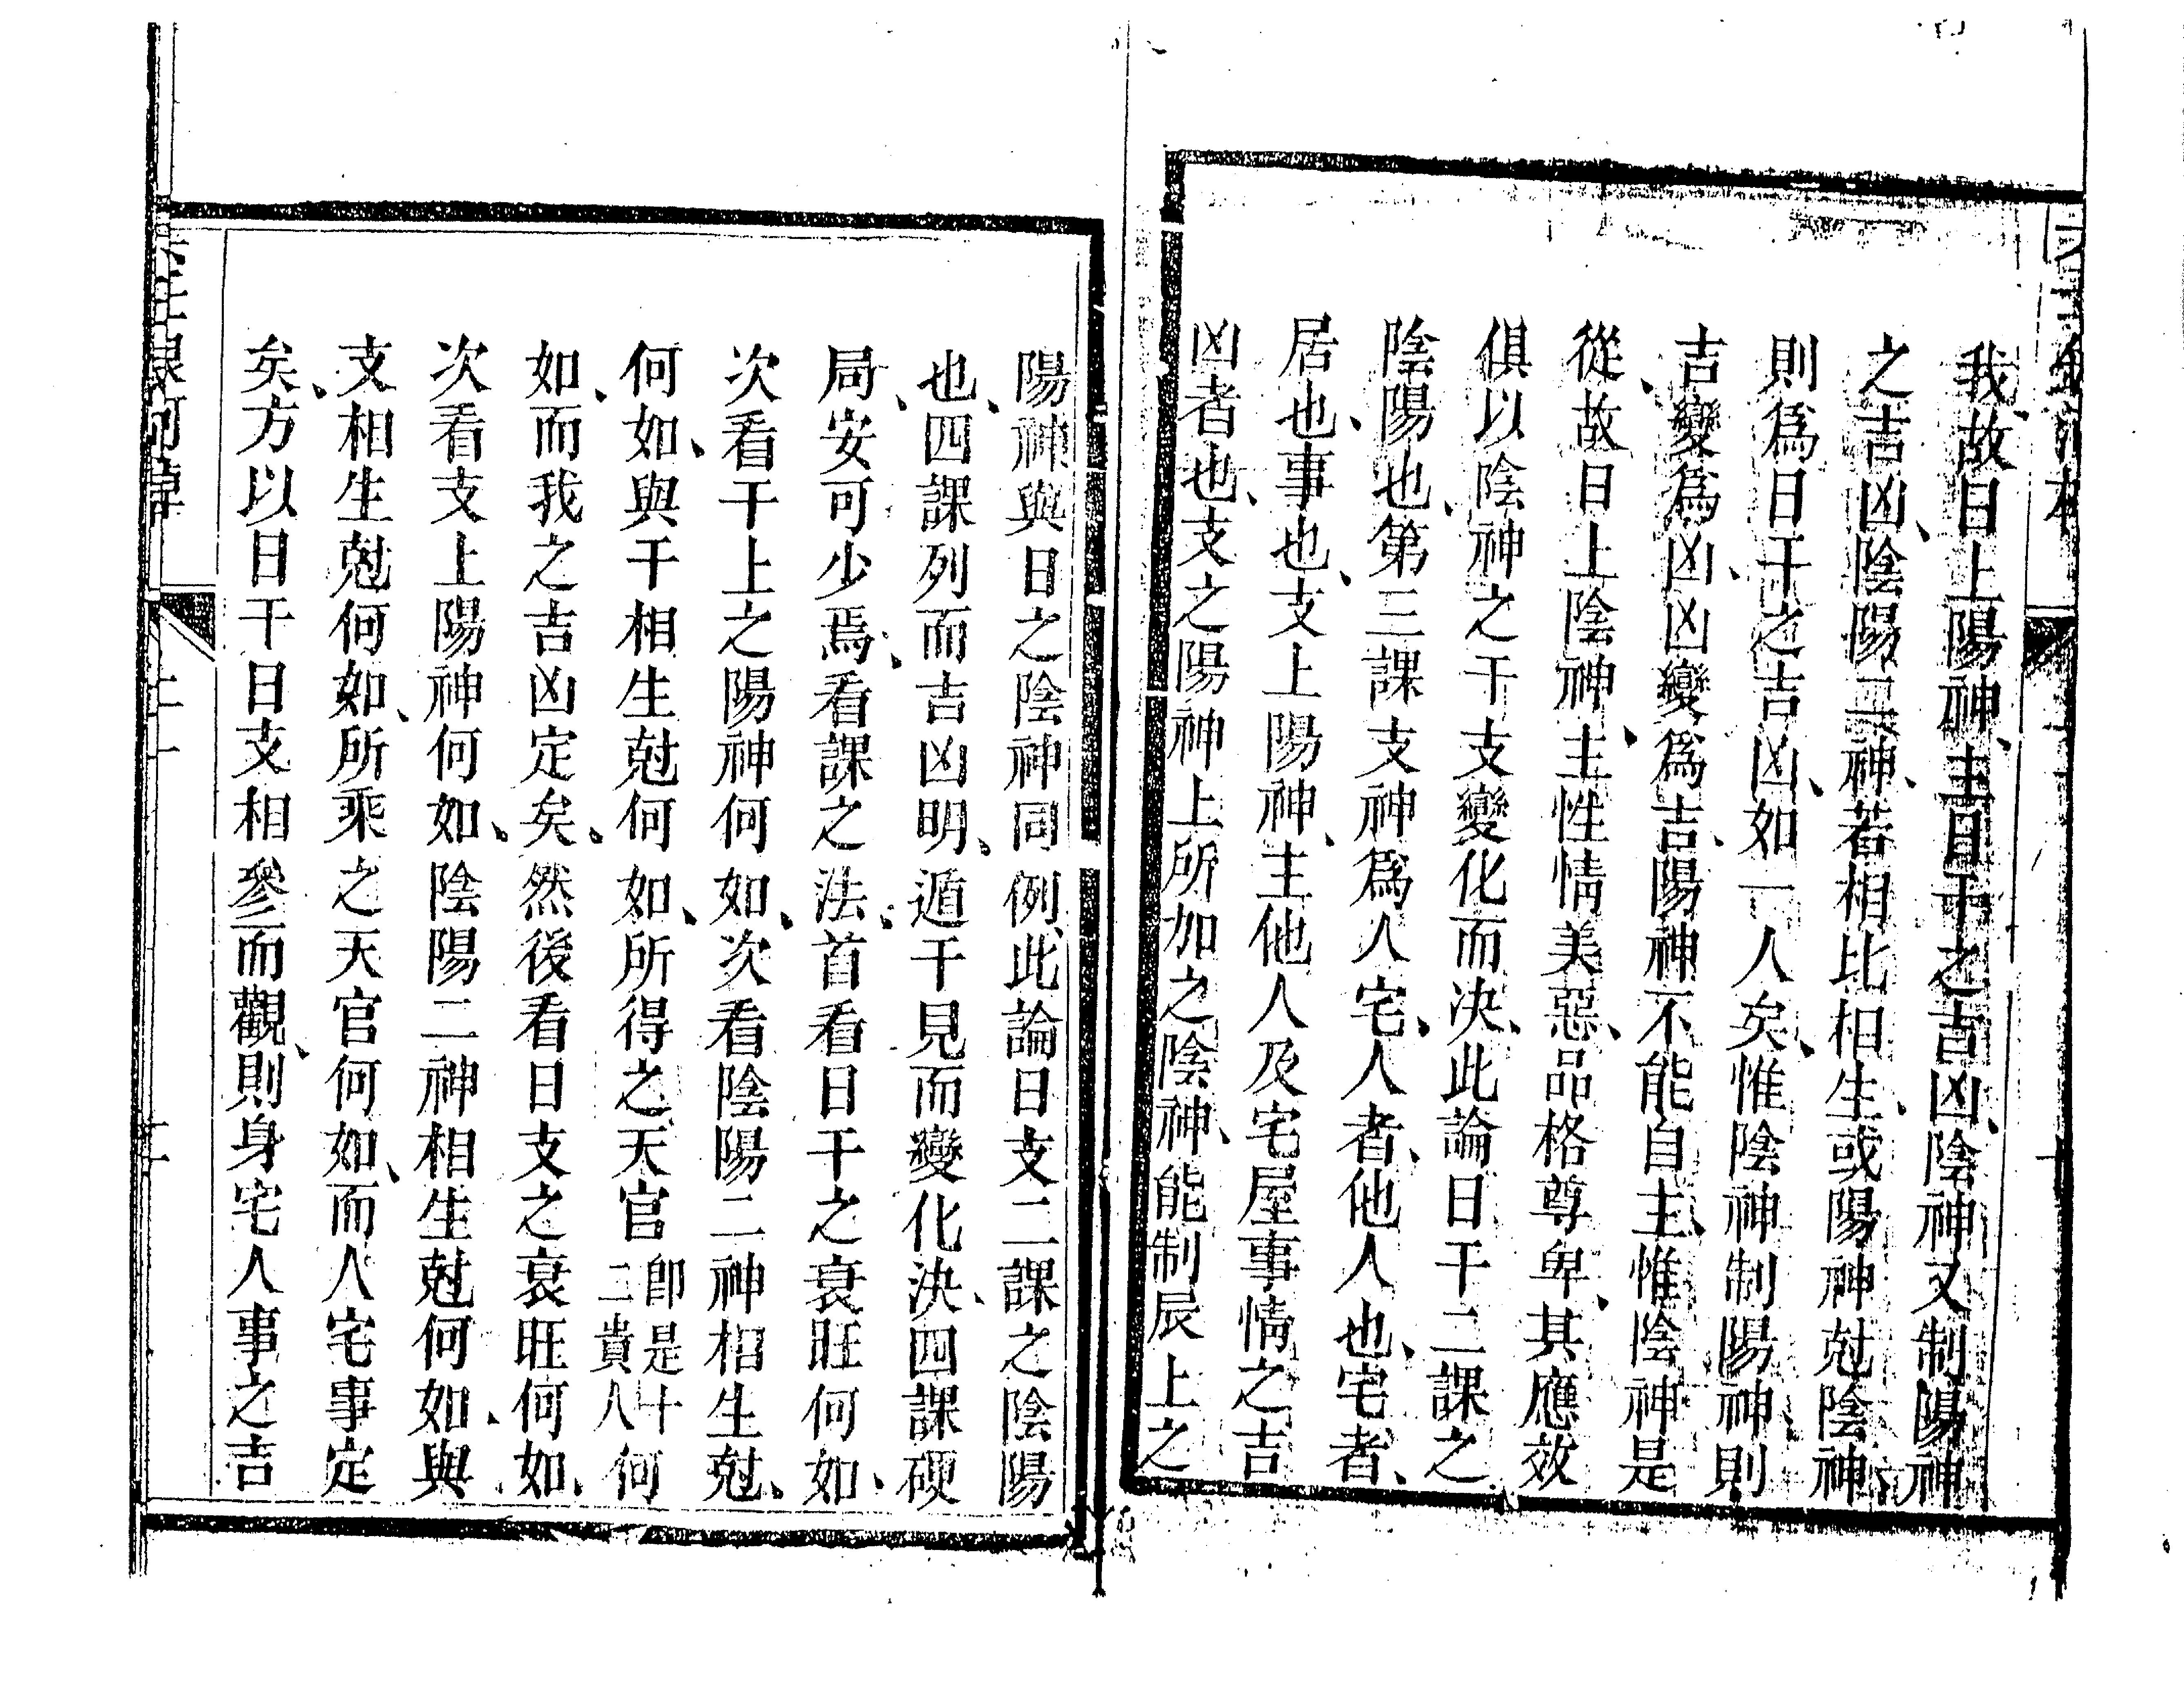 我故日上陽神主日干之吉凶陰神又制陽神
之吉凶陰陽二神若相比相生或陽神尅陰神
則爲日干之吉凶如一人矣惟陰神制陽神則
吉變爲凶凶變爲吉陽神不能自主惟陰神是
從故日上陰神主性情美惡品格尊卑其應效
俱以陰神之干支變化而決此論日干二課之
陰陽也第三課支神爲人宅人者他人也宅者
居也事也支上陽神主他人及宅屋事情之吉
凶者也支之陽神上所加之陰神能制辰上之
陽神與日之陰神同例此論日支二課之陰陽
也四課列而吉凶明遁干見而變化決四課硬
局安可少焉看課之法首看日干之衰旺何如
次看干上之陽神何如次看陰陽二神相生尅
何如與干相生尅何如所得之天官即是十二貴人何
如而我之吉凶定矣然後看日支之衰旺何如
次看支上陽神何如陰陽二神相生尅何如與
支相生尅何如所乘之天官何如而人宅事定
矣方以日干日支相參而觀則身宅人事之吉